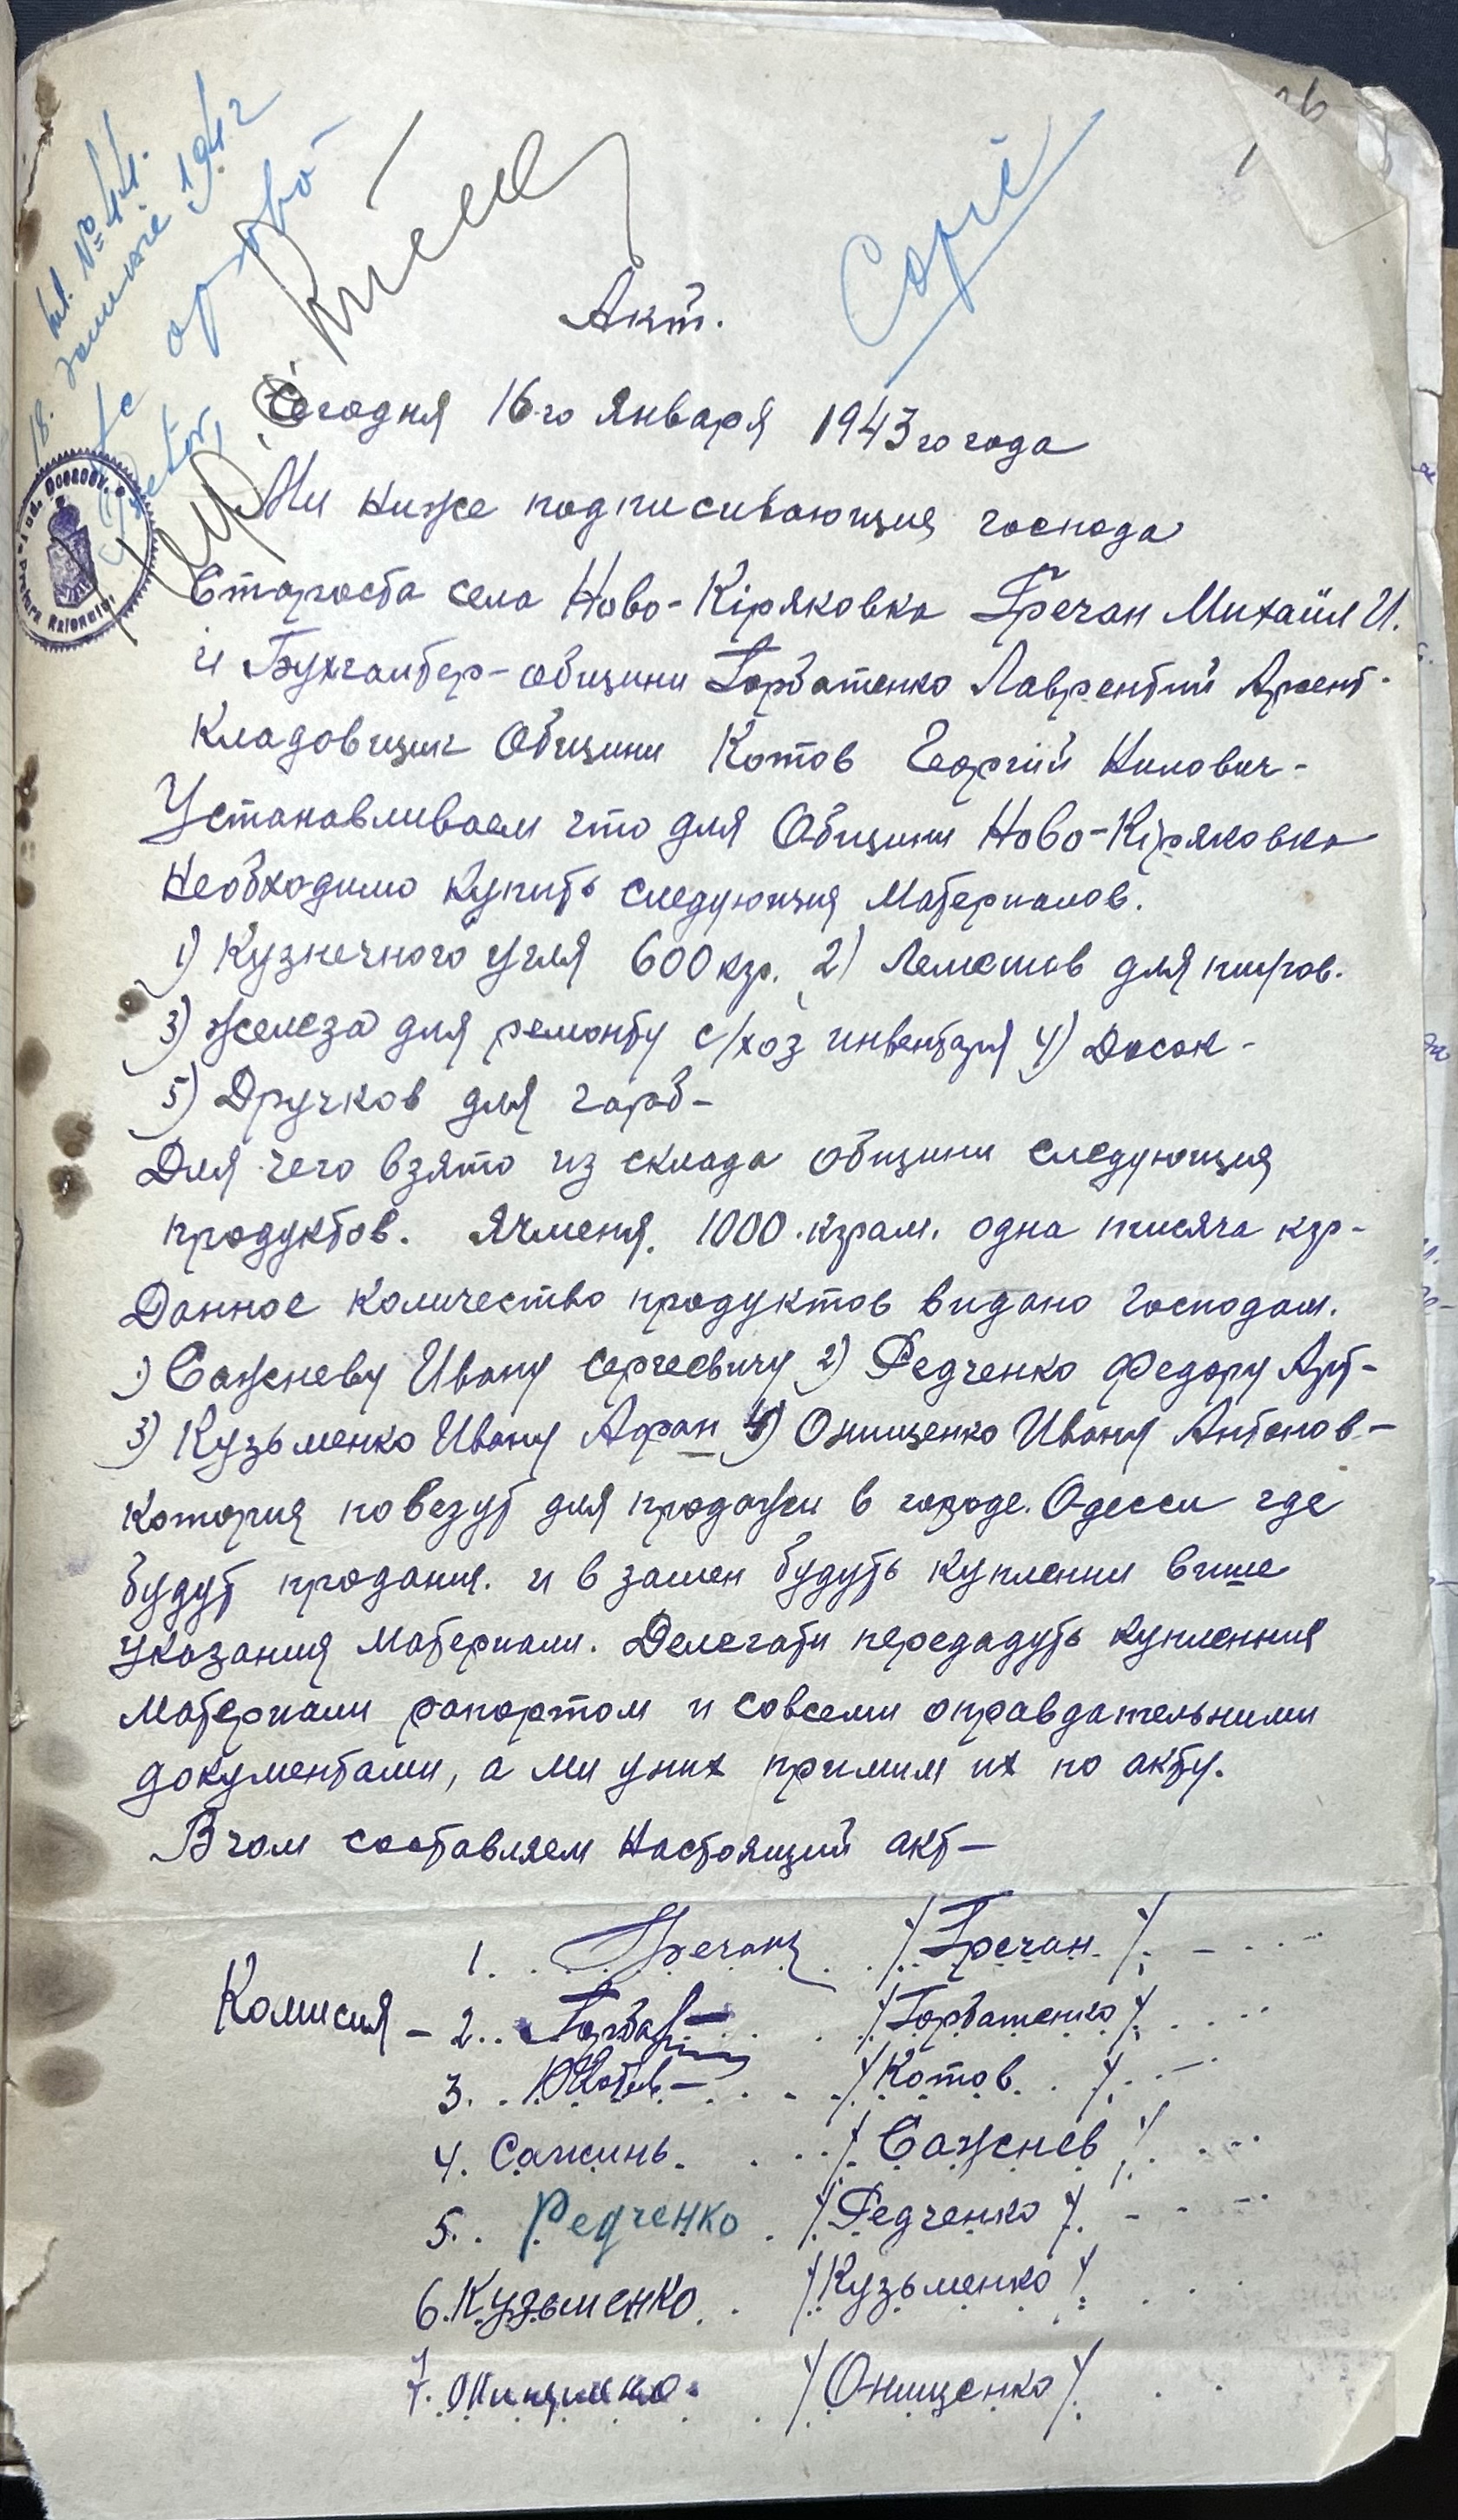 26
Copie
18. ianuarie 1942
Se aprobă
Акт.
Сегодня 16-го января 1943 го года
Ми ниже подписивающия господа
Староста села Ново-Кіряковка Гречан Михайл И.
и Бухгалтер-общини Горбатенко Лаврентий Арсент-
Кладовщик Общини Котов Георгий Нилович-
Устанавливаем что для Общини Ново-Кіряковка
Необходимо купить следующия Материалов.
1) Кузнечного угля 600 кгр. 2) Лемешов для плугов.
3) Железа для ремонту с/хоз инвентаря 4) Досок -
5) Дручков для гарб-
Для чего взято из склада общини следующия
продуктов. Ячменя. 1000. кграм. одна тисяча кгр-
Данное количество продуктов видано господам.
1) Сажневу Ивану Сергеевичу 2) Федченко Федору Арт-
3) Кузьменко Ивану Афан 4) Онищенко Ивану Антонов-
котория повезут для продажи в городе. Одесси где
будут продания. и в замен будуть куплении више
указания Материали. Делегати передадуть купленния
Материали рапортом и совсеми оправдательними
документами, а ми уних примим их по акту.
В чом составляем Настоящий акт-
Комисия -
1. Гречан /Гречан/
2. Горбат /Горбатенко/
3. Котов /Котов/
4. Сажинь. /Сажнев/
5. Федченко /Федченко/
6. Кузьменко /Кузьменко/
7. Онищенко /Онищенко/